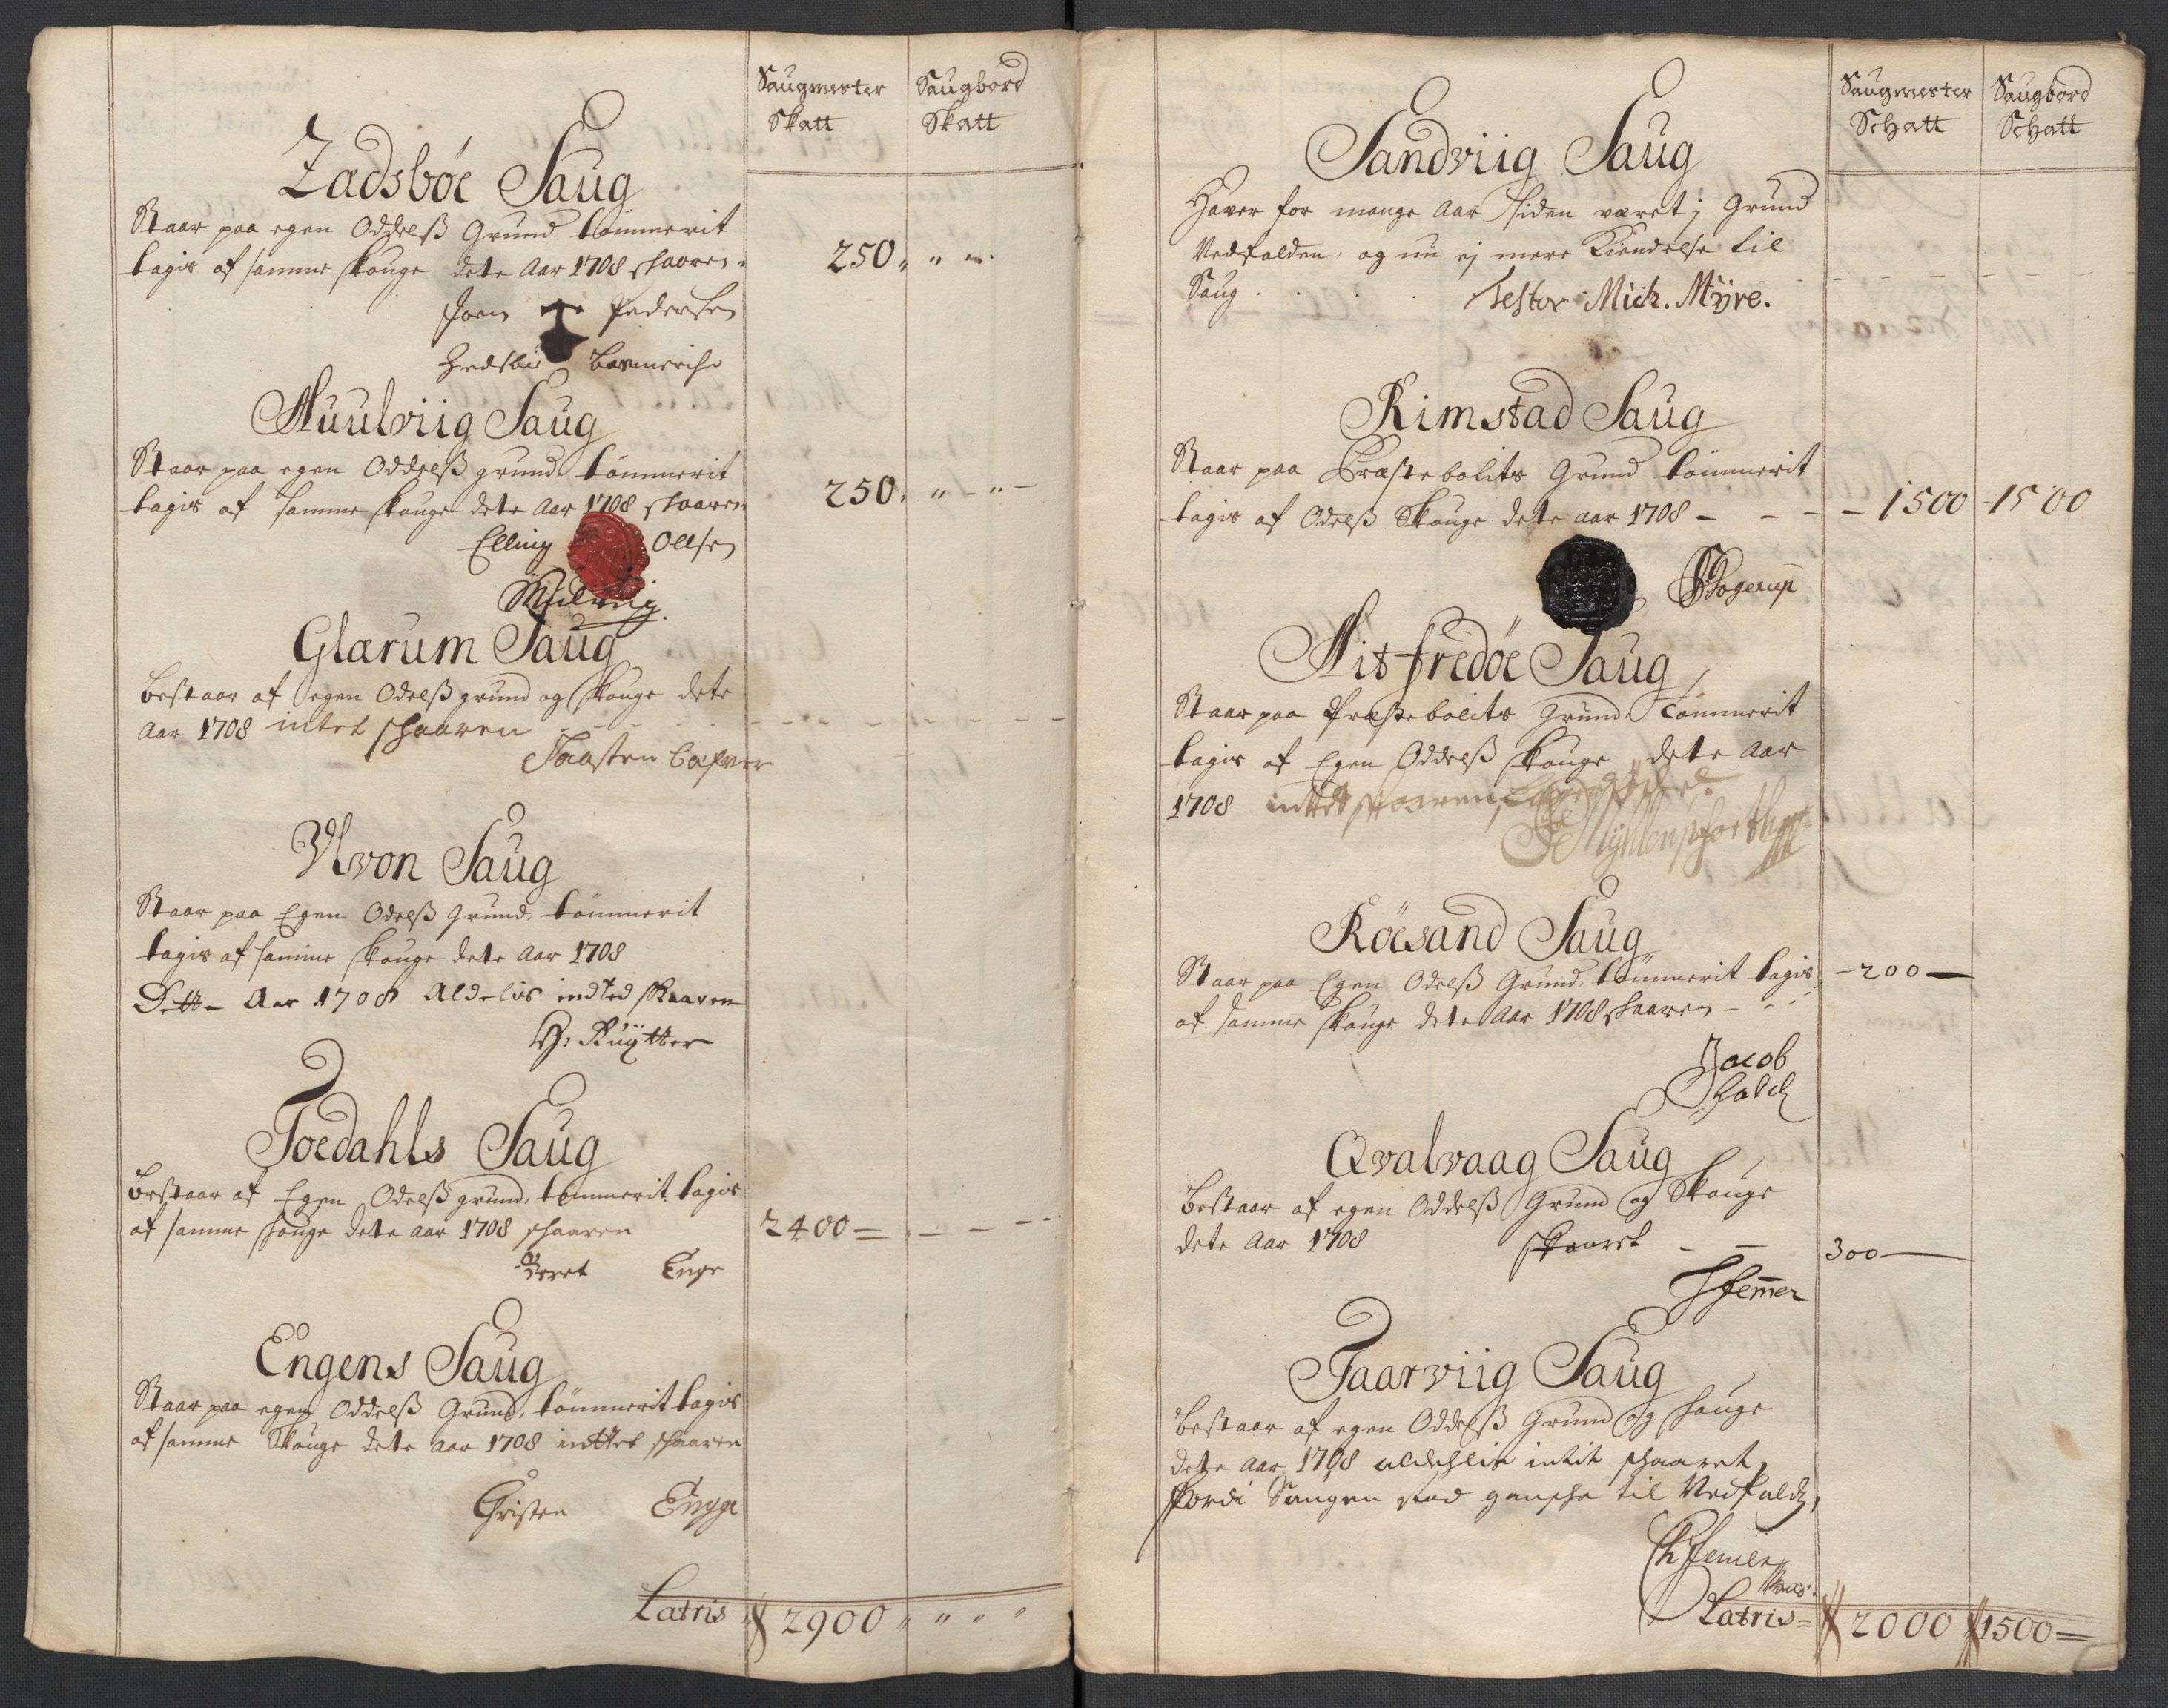 Saugmester Saugbord
Skatt Skatt
Zadsbøe Saug
Staar paa egen Oddelß Grund tømmerit
tagis af samme skouge dete Aar 1708 skaaren 250 " "
Joen Pedersen
Zedsbøe
Muulviig Saug
Staar paa egen Oddelß grund tømmerit
tagis af samme skouge dete Aar 1708 skaaren 250 " - " -
Elling Ollsen
Muelviig
Glærum Saug
Bestaar af egen Odelß grund og skouge dete
Aar 1708 intet skaaren - - -
Hvon Saug
Staar paa Egen Odelß Grund, tømmerit
tagis af samme skouge dete Aar 1708
Dette Aar 1708 Aldelis indted skaaren
H: Rüÿtter
Toedahls Saug
Bestaar af Egen Odelß grund, tømmerit tagis
af samme skouge dete aar 1708 skaaren 2400 = - - -
Beret Enge
Engens Saug
Staar paa egen Oddelß Grund, tømmerit tagis
af samme Skouge dete aar 1708 inttet skaaren
Christen Enge
Latris 2900 " " "
Saugmester Saugbord
Schatt Schatt
Sandviig Saug
Haver for mange Aar siden været j Grund
Nedfalden, og nu ej mere Kiendelse til
Saug . . . Testor Mich. Mÿre.
Rimstad Saug
Staar paa Præstebolits Grund tømmerit
tagis af Odelß Skouge dete aar 1708 - - - 1500 - 1500
Schogerup
Aitfredøe Saug
Staar paa Præstebolits Grund Tømmerit
tagis af Egen Oddelß skouge dete Aar
1708 inttet skaaren,
Røesand Saug
Staar paa Egen Odelß Grund, tømmerit tagis - 200 -
af samme skouge dete Aar 1708 skaaren - - -
Jacob
Schalch
Qvalvaag Saug
Bestaar af egen Oddelß Grund og Skouge
dete Aar 1708 skaaret - - 300 -
Taarviig Saug
Bestaar af egen Oddelß Grund og skouge
dete Aar 1708 aldehlis intit skaaret,
fordi Saugen stod gansche til Nedfalds,
Latris = 2000 1500 =